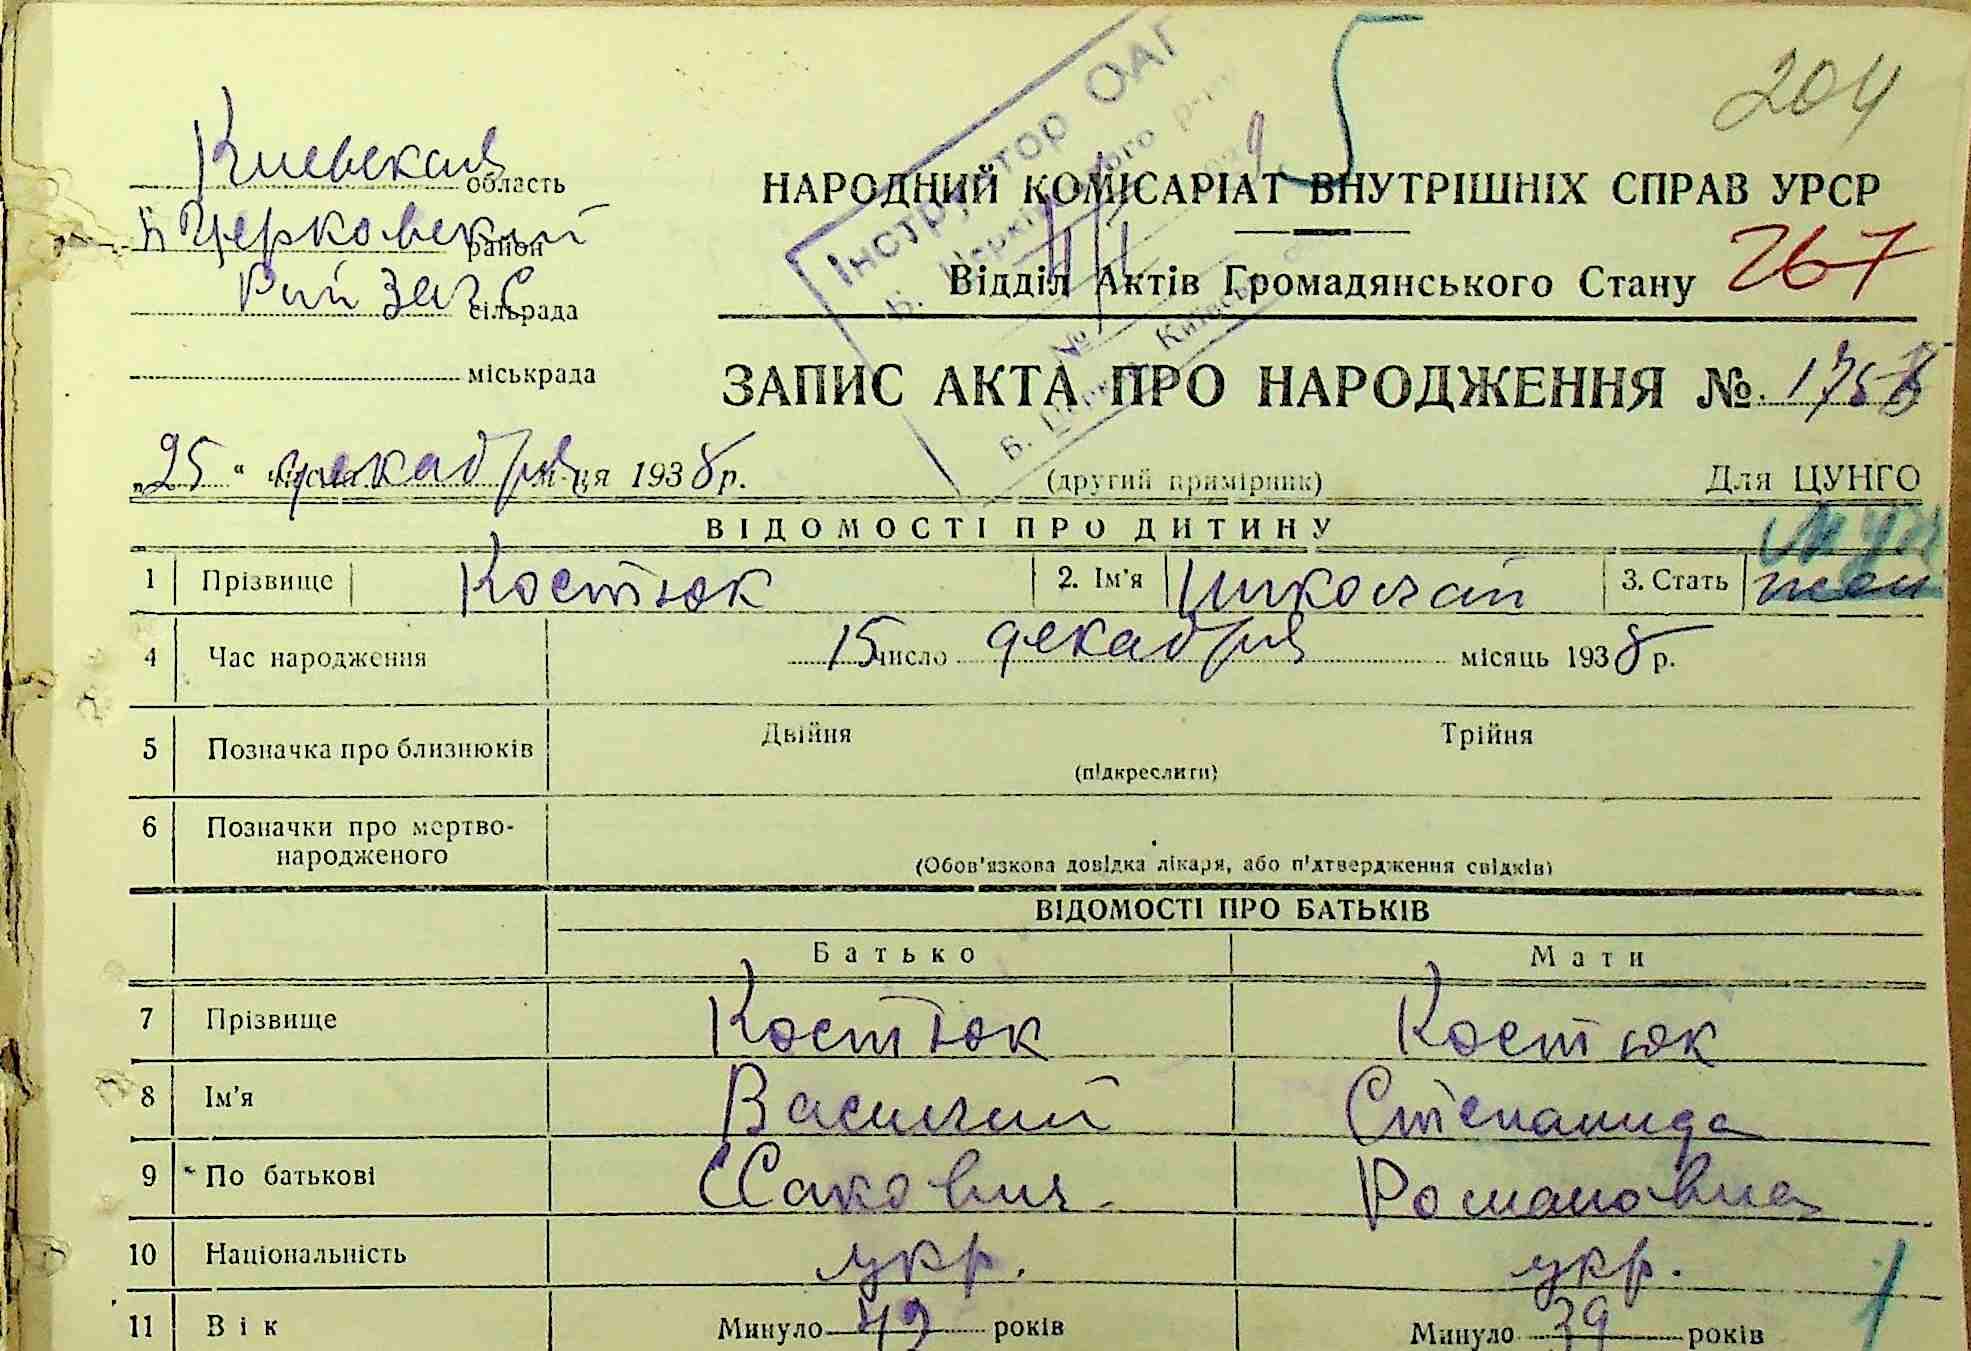 204
Киевская область
Б Церковский район
Рай Загс сільрада
міськрада
Інструктор ОАГ
НАРОДНИЙ КОМІСАРІАТ ВНУТРІШНІХ СПРАВ УРСР
Відділ Актів Громадянського Стану 267
ЗАПИС АКТА ПРО НАРОДЖЕННЯ №
„25“ декабря м-ця 1938 р.
(другий примірник)
Для ЦУНГО
ВІДОМОСТІ ПРО ДИТИНУ
муж
1 Прізвище Костюк 2. Ім'я Николай 3. Стать жен
4 Час народження 15 число декабря місяць 1938 р.
5 Позначка про близнюків Двійня Трійня
(підкреслити)
6 Позначки про мертво-
народженого
(Обов'язкова довідка лікаря, або підтвердження свідків)
ВІДОМОСТІ ПРО БАТЬКІВ
Батько Мати
7 Прізвище Костюк Костюк
8 Ім'я Василий Степанида
9 По батькові Исакович Романовна
10 Національність укр. укр.
11 Вік Минуло 42 років Минуло 39 років